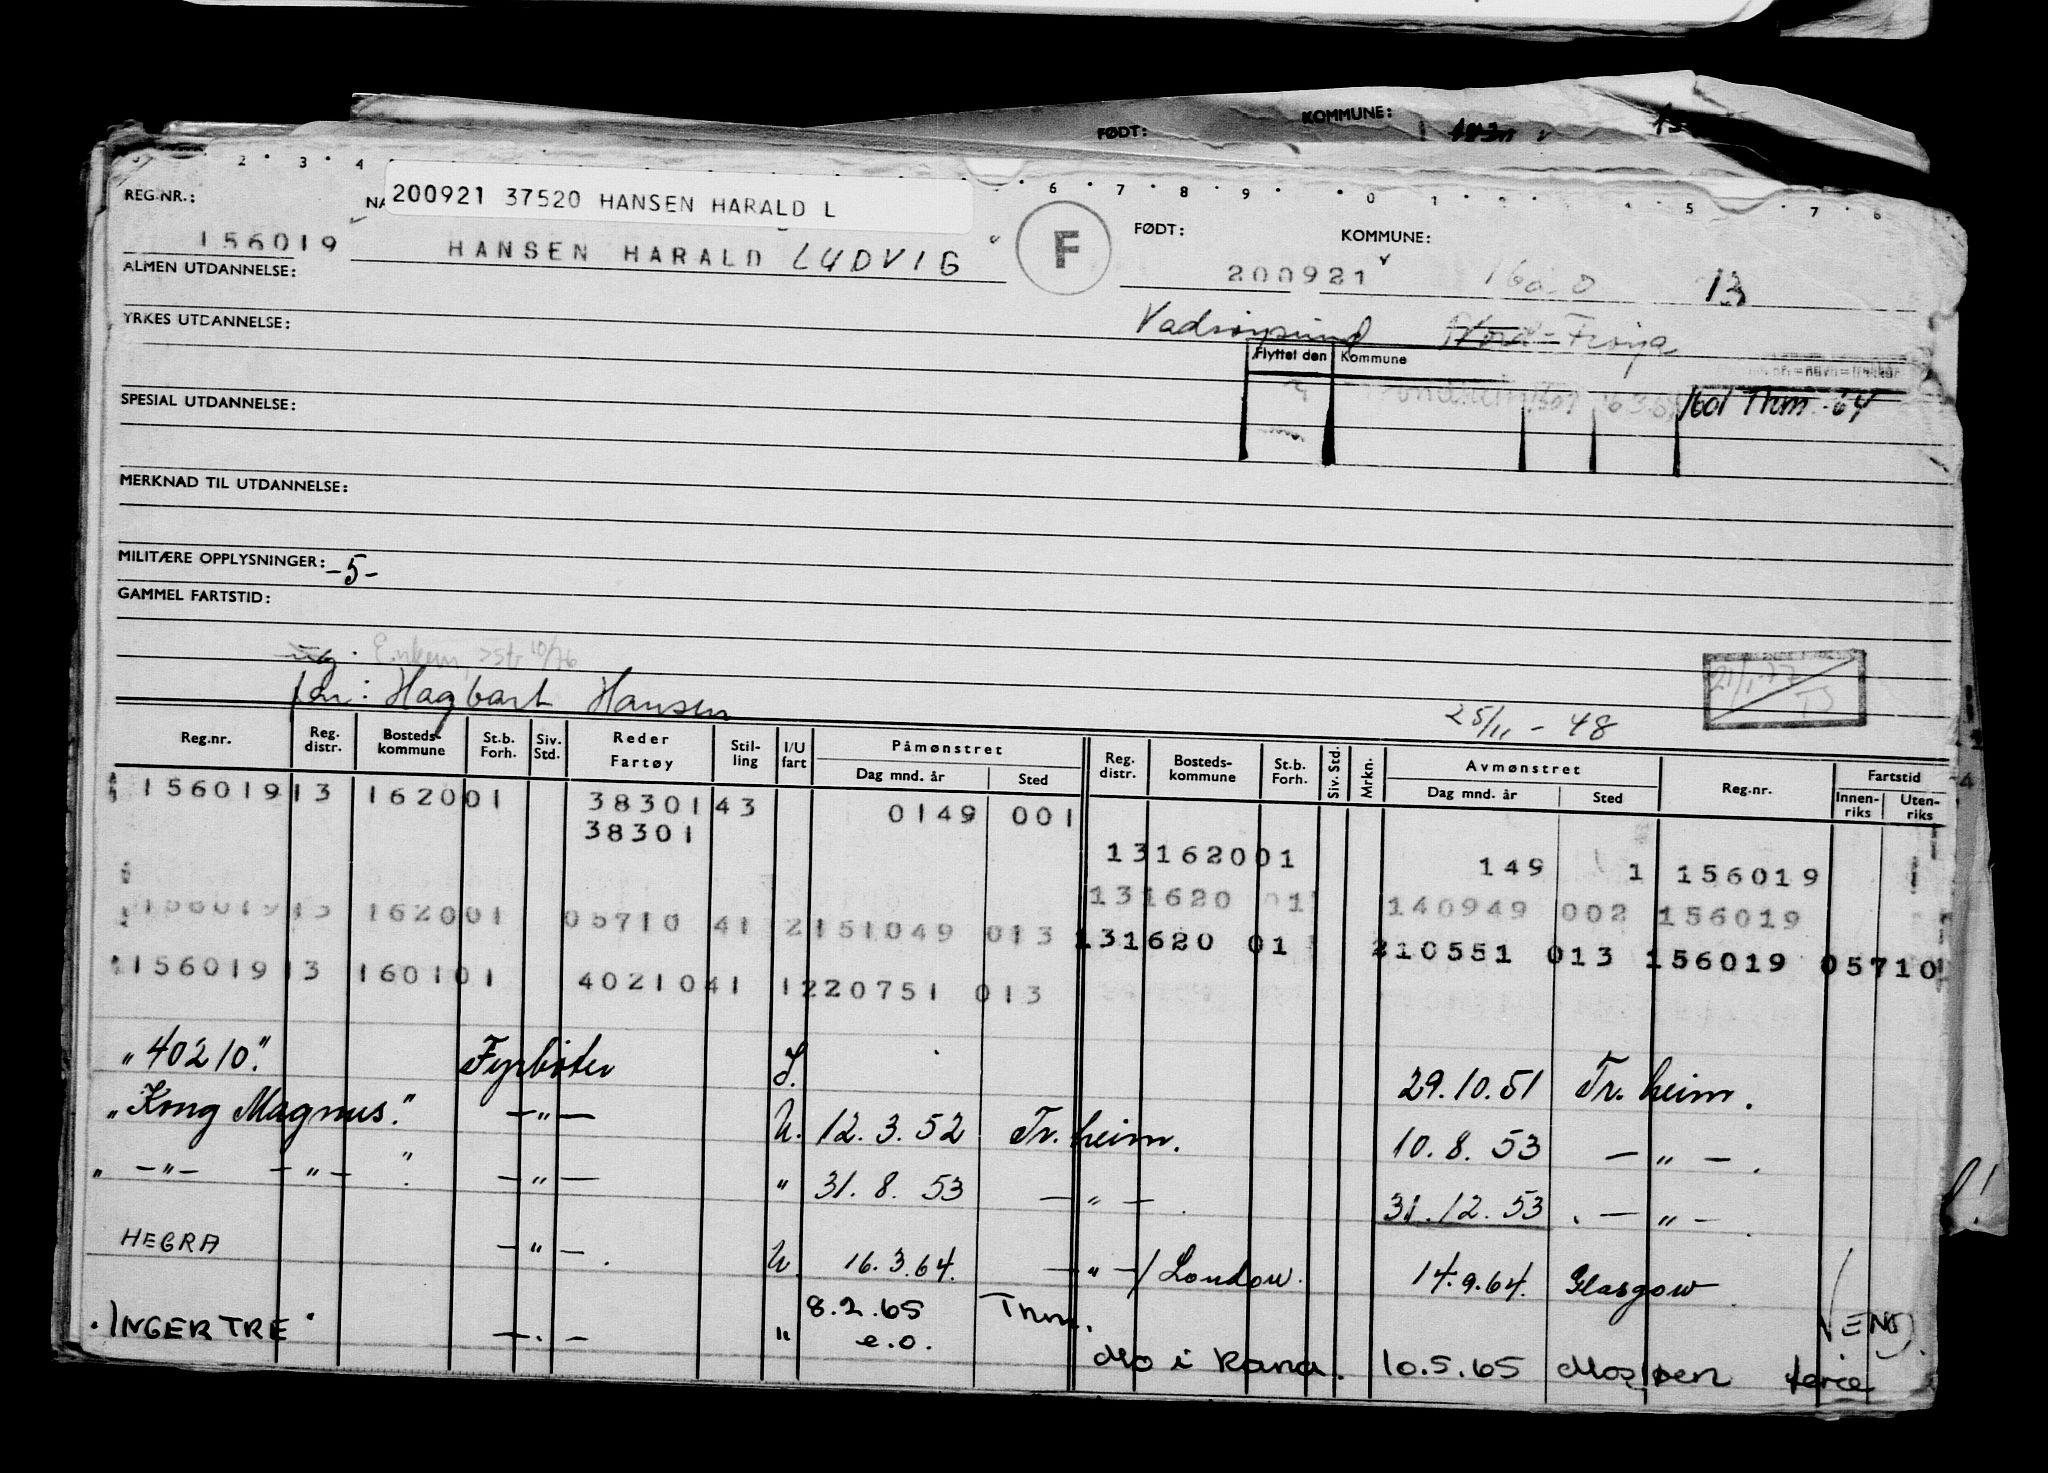 FØDT: KOMMUNE:
2 3 4 6 7 8 9 0 1 5 7 8
REG.NR.: NA 200921 37520 HANSEN HARALD L FØDT: KOMMUNE:
156019 HANSEN HARALD LUDVIG F 200921 13
ALMEN UTDANNELSE:
YRKES UTDANNELSE: Frøya
Flyttet den Kommune
SPESIAL UTDANNELSE: 1601 Thm -64
MERKNAD TIL UTDANNELSE:
MILITÆRE OPPLYSNINGER: -5-
GAMMEL FARTSTID:
far: Hagbart Hansen 25/11 - 48
Reg.nr. Reg. distr. Bosteds-kommune St.b. Forh. Siv. Std. Reder Fartøy Stil-ling I/U fart Påmønstret Dag mnd. år Sted Reg. distr. Bosteds-kommune St.b. Forh. Siv. Std. Mrkn. Avmønstret Dag mnd. år Sted Reg.nr. Fartstid Innen-riks Uten-riks
156019 13 1620 01 38301 43 0149 001
38301 13 1620 01 149 1 156019
131620 01 140949 002 156019
156019 13 1620 01 05710 41 2 151049 013 131620 01 210551 013 156019 05710
156019 13 1601 01 40210 41 1 220751 013
"40210" Fyrbøter I. 29.10.51 Tr.heim.
"Kong Magnus" -"- U. 12.3.52 Tr.heim. 10.8.53 -"-.
" -"- -"- " -"- " 31.8.53 -"-. 31.12.53 . -"-
HEGRA -"-. U. 16.3.64. -"-/London. 14.9.64. Glasgow
"INGERTRE" -"- " 8.2.65 Thm. e.o. Mo i Rana. 10.5.65 Mosjøen ferie